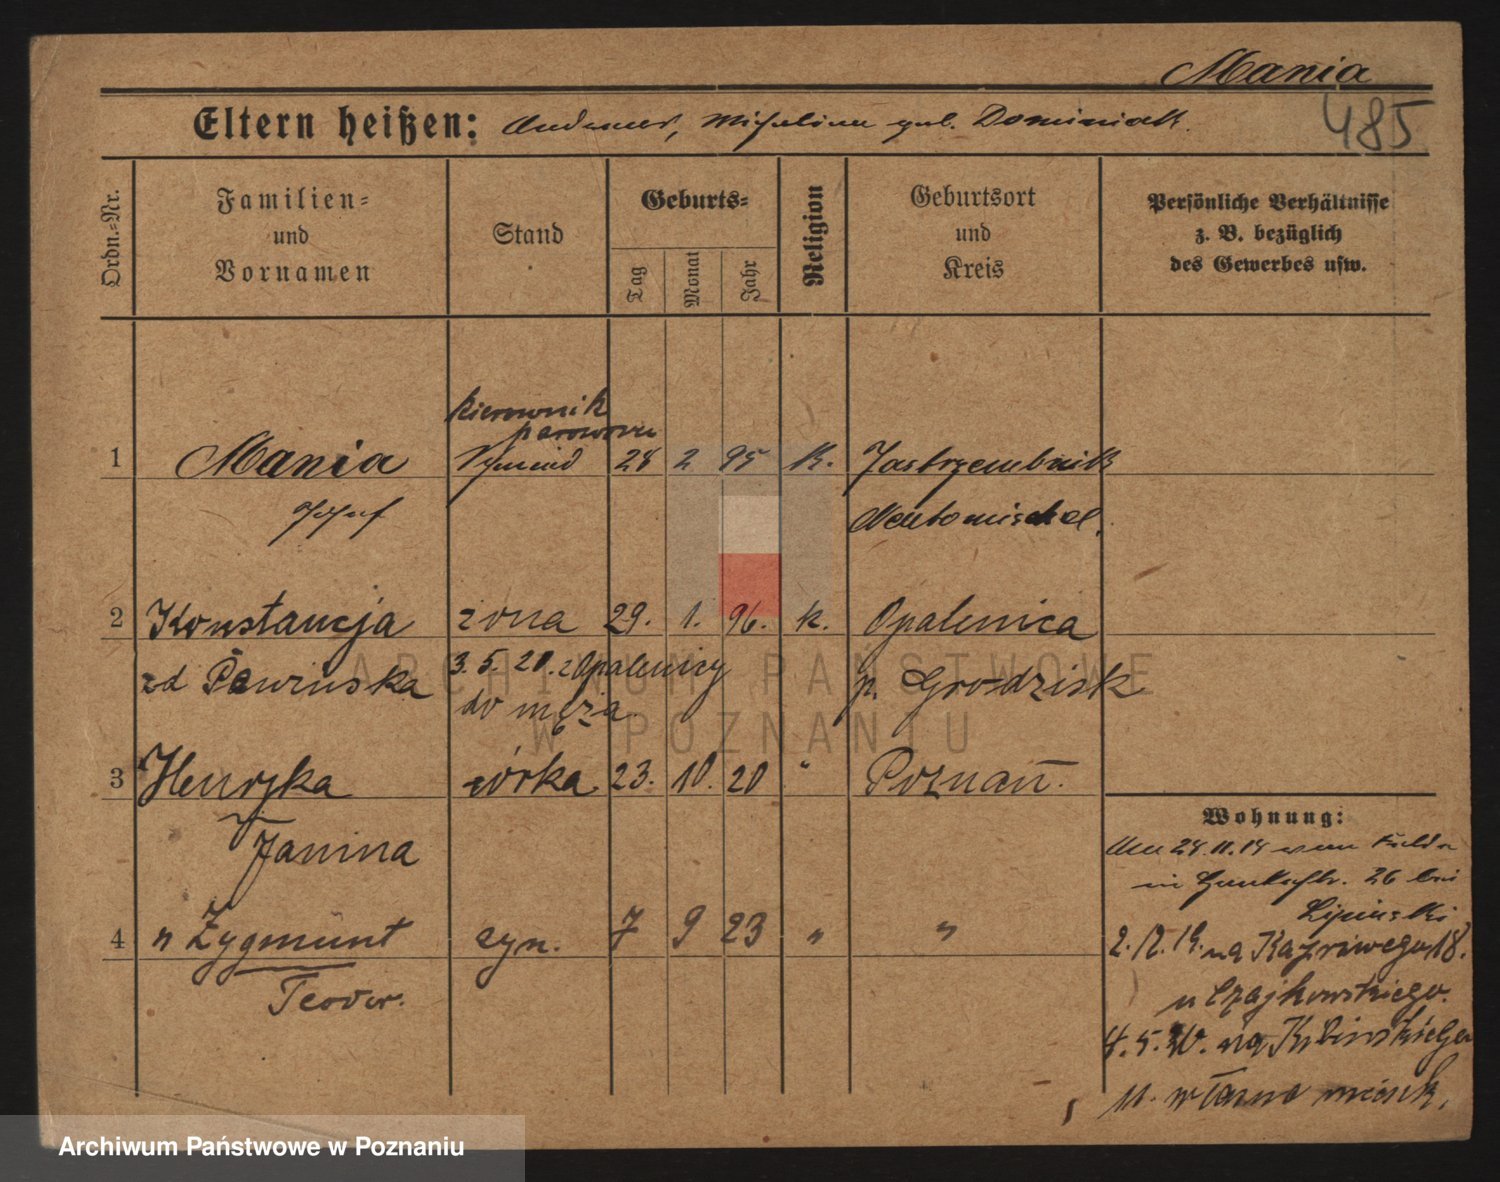 Mania
485
Eltern heißen: Michalina geb. Dominiak.
Ordn.-Nr.
Familien-
und
Vornamen
Stand
Geburts-
Tag
Monat
Jahr
Religion
Geburtsort
und
Kreis
Persönliche Verhältnisse
z. B. bezüglich
des Gewerbes usw.
kierownik
parowozu
1 Mania 28 2 95 k. Jastrzembnik
Josef Neutomischel.
2 Konstancja żona 29. 1. 96. k. Opalenica
zd 3. 5. 20. z Opalenicy p. Grodzisk
do męża
3 Henryka córka 23. 10. 20 " Poznań.
Janina
4 " Zygmunt syn. 7 9 23 " "
Teodor.
Wohnung:
26 bei
Lipinski
2. 12. 19. na 18.
u Czajkowskiego.
4. 5. 20. na
11. własne mieszk.
ARCHIWUM PAŃSTWOWE
W POZNANIU
Archiwum Państwowe w Poznaniu